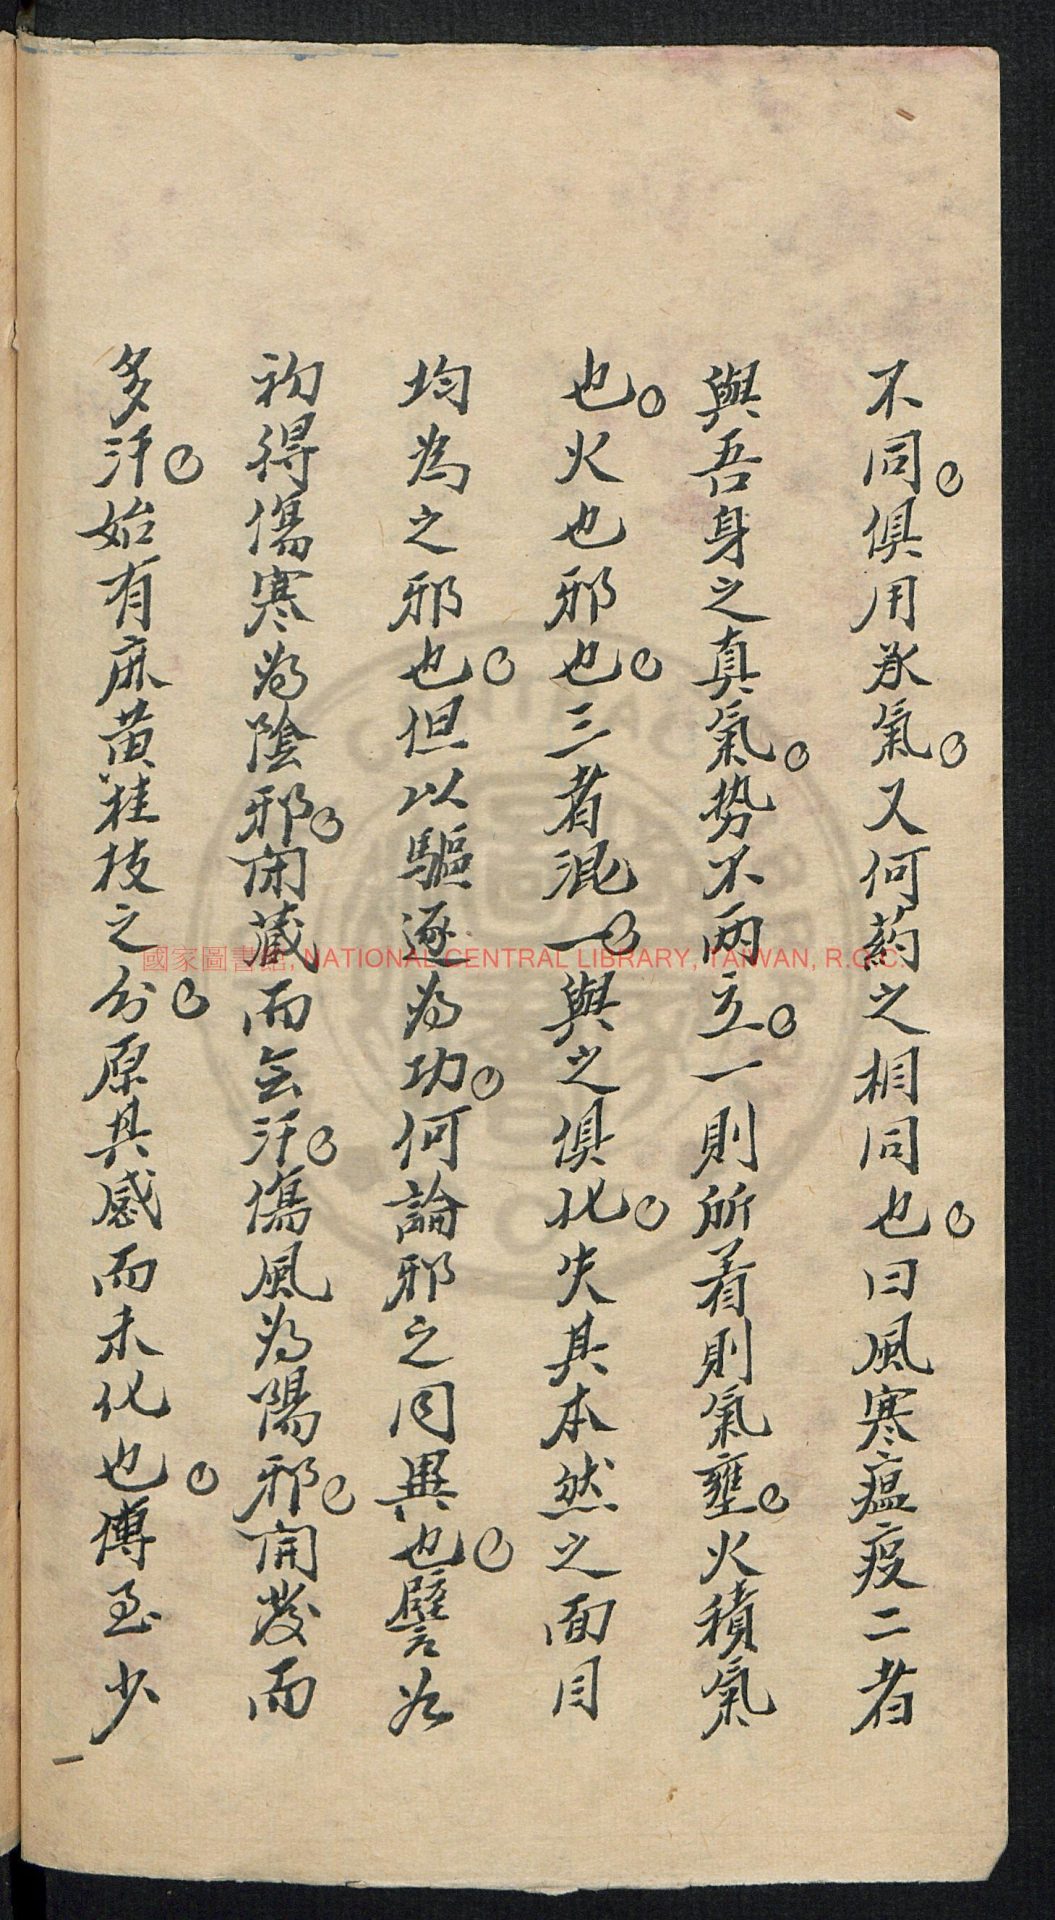 不同。俱用承氣。又何葯之相同也。曰風寒瘟疫二者
與吾身之真氣。势不兩立。一則所着則氣壅。火積氣
也。火也邪也。三者混一。與之俱化。失其本然之面目
均為之邪也。但以驅逐為功。何論邪之同異也。譬如
初得傷寒為陰邪。闭藏而無汗。傷風為陽邪。開發而
多汗。始有麻黄桂枝之分。原其感而未化也。傅至少
國家圖書館, NATIONAL CENTRAL LIBRARY, TAIWAN, R.O.C.